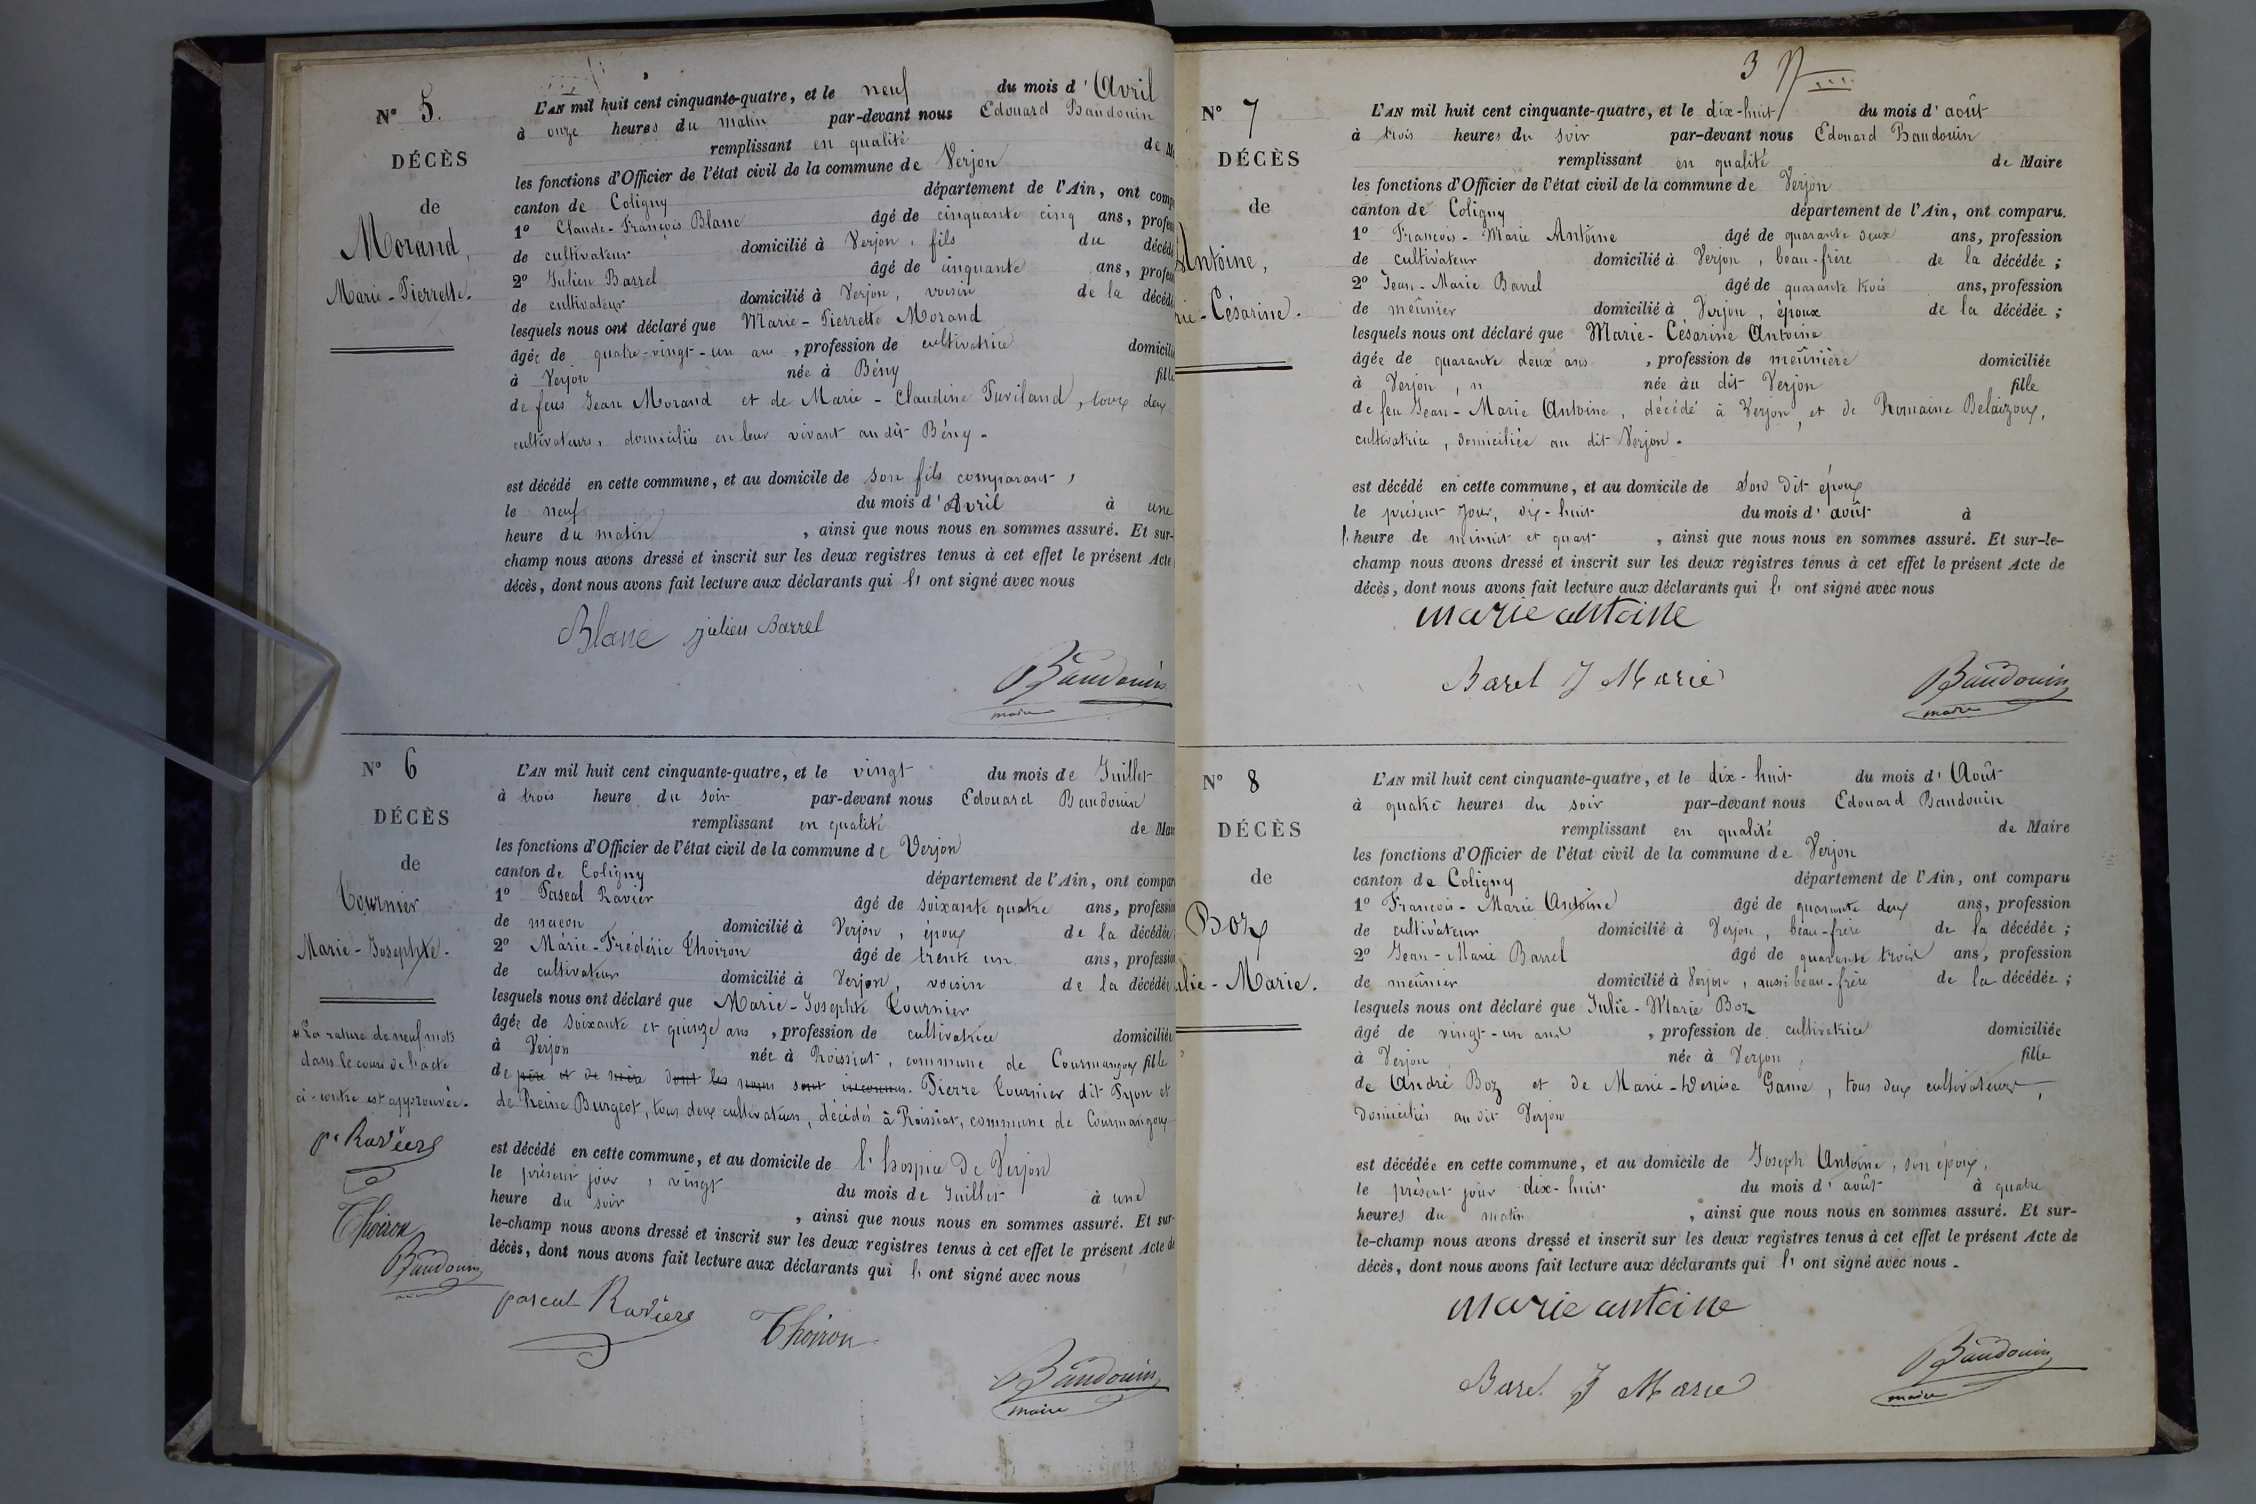 N° 5.
DÉCÈS
de
Morand,
Marie-Pierrette.
L'AN mil huit cent cinquante-quatre, et le neuf du mois d'Avril
à onze heures du matin par-devant nous Edouard Baudouin
remplissant en qualité de
les fonctions d'Officier de l'état civil de la commune de Verjon
canton de Coligny département de l'Ain, ont comp
1° Claude-François Blanc âgé de cinquante cinq ans, profes
de cultivateur domicilié à Verjon, fils du décédé
2° Julien Barrel âgé de cinquante ans, profes
de cultivateur domicilié à Verjon, voisin de la décédé
lesquels nous ont déclaré que Marie-Pierrette Morand
âgée de quatre-vingt-un ans, profession de cultivatrice domicili
à Verjon née à Bény fille
de feus Jean Morand et de Marie-Claudine Puviland, tous deux
cultivateurs, domiciliés en leur vivant au dit Bény.
est décédé en cette commune, et au domicile de son fils comparant,
le neuf du mois d'Avril à une
heure du matin, ainsi que nous nous en sommes assuré. Et sur-
champ nous avons dressé et inscrit sur les deux registres tenus à cet effet le présent Acte
décès, dont nous avons fait lecture aux déclarants qui l' ont signé avec nous
Blanc julien Barrel
Baudouin
maire
N° 6
DÉCÈS
de
Tournier
Marie-Josephte.
La rature de neuf mots
dans le cours de l'acte
ci-contre est approuvée.
p. Raviere
Thoiron
Baudouin
L'AN mil huit cent cinquante-quatre, et le vingt du mois de Juillet
à trois heure du soir par-devant nous Edouard Baudouin
remplissant en qualité de Mai
les fonctions d'Officier de l'état civil de la commune de Verjon
canton de Coligny département de l'Ain, ont compar
1° Pascal Ravier âgé de soixante quatre ans, profession
de macon domicilié à Verjon, époux de la décédée
2° Marie-Frédéric Thoiron âgé de trente un ans, profession
de cultivateur domicilié à Verjon, voisin de la décédée
lesquels nous ont déclaré que Marie-Josephte Tournier
âgée de soixante et quinze ans, profession de cultivatrice domiciliée
à Verjon née à Roissiat, commune de Courmangoux fille
de père et de mère dont les noms sont inconnus. Pierre Tournier dit Pyon et
de Reine Burgeot, tous deux cultivateurs, décédés à Roissiat, commune de Courmangoux
est décédé en cette commune, et au domicile de l'hospice de Verjon
le présent jour, vingt du mois de Juillet à une
heure du soir, ainsi que nous nous en sommes assuré. Et sur-
le-champ nous avons dressé et inscrit sur les deux registres tenus à cet effet le présent Acte de
décès, dont nous avons fait lecture aux déclarants qui l' ont signé avec nous
pascal Raviere Thoiron
Baudouin
maire
3
N° 7
DÉCÈS
de
Antoine,
rie-Césarine.
L'AN mil huit cent cinquante-quatre, et le dix-huit du mois d'août
à trois heures du soir par-devant nous Edouard Baudouin
remplissant en qualité de Maire
les fonctions d'Officier de l'état civil de la commune de Verjon
canton de Coligny département de l'Ain, ont comparu.
1° François-Marie Antoine âgé de quarante deux ans, profession
de cultivateur domicilié à Verjon, beau-frère de la décédée;
2° Jean-Marie Barrel âgé de quarante trois ans, profession
de meûnier domicilié à Verjon, époux de la décédée;
lesquels nous ont déclaré que Marie-Césarine Antoine
âgée de quarante deux ans, profession de meûnière domiciliée
à Verjon, n née au dit Verjon fille
de feu Jean-Marie Antoine, décédé à Verjon, et de Romaine Belaizoux,
cultivatrice, domiciliée au dit Verjon.
est décédé en cette commune, et au domicile de son dit époux
le présent jour, dix-huit du mois d'août à
l'heure de minuit et quart, ainsi que nous nous en sommes assuré. Et sur-le-
champ nous avons dressé et inscrit sur les deux registres tenus à cet effet le présent Acte de
décès, dont nous avons fait lecture aux déclarants qui l' ont signé avec nous
marie antoine
Barel J Marie
Baudouin
maire
N° 8
DÉCÈS
de
Boz
ulie-Marie.
L'AN mil huit cent cinquante-quatre, et le dix-huit du mois d'Août
à quatre heures du soir par-devant nous Edouard Baudouin
remplissant en qualité de Maire
les fonctions d'Officier de l'état civil de la commune de Verjon
canton de Coligny département de l'Ain, ont comparu
1° François-Marie Antoine âgé de quarante deux ans, profession
de cultivateur domicilié à Verjon, beau-frère de la décédée;
2° Jean-Marie Barrel âgé de quarante trois ans, profession
de meûnier domicilié à Verjon, aussi beau-frère de la décédée;
lesquels nous ont déclaré que Julie-Marie Boz
âgé de vingt-un ans, profession de cultivatrice domiciliée
à Verjon née à Verjon, fille
de André Boz et de Marie-Denise Game, tous deux cultivateurs,
domiciliés au dit Verjon
est décédée en cette commune, et au domicile de Joseph Antoine, son époux,
le présent jour dix-huit du mois d'août à quatre
heures du matin, ainsi que nous nous en sommes assuré. Et sur-
le-champ nous avons dressé et inscrit sur les deux registres tenus à cet effet le présent Acte de
décès, dont nous avons fait lecture aux déclarants qui l' ont signé avec nous.
marie antoine
Barel J Marie
Baudouin
maire